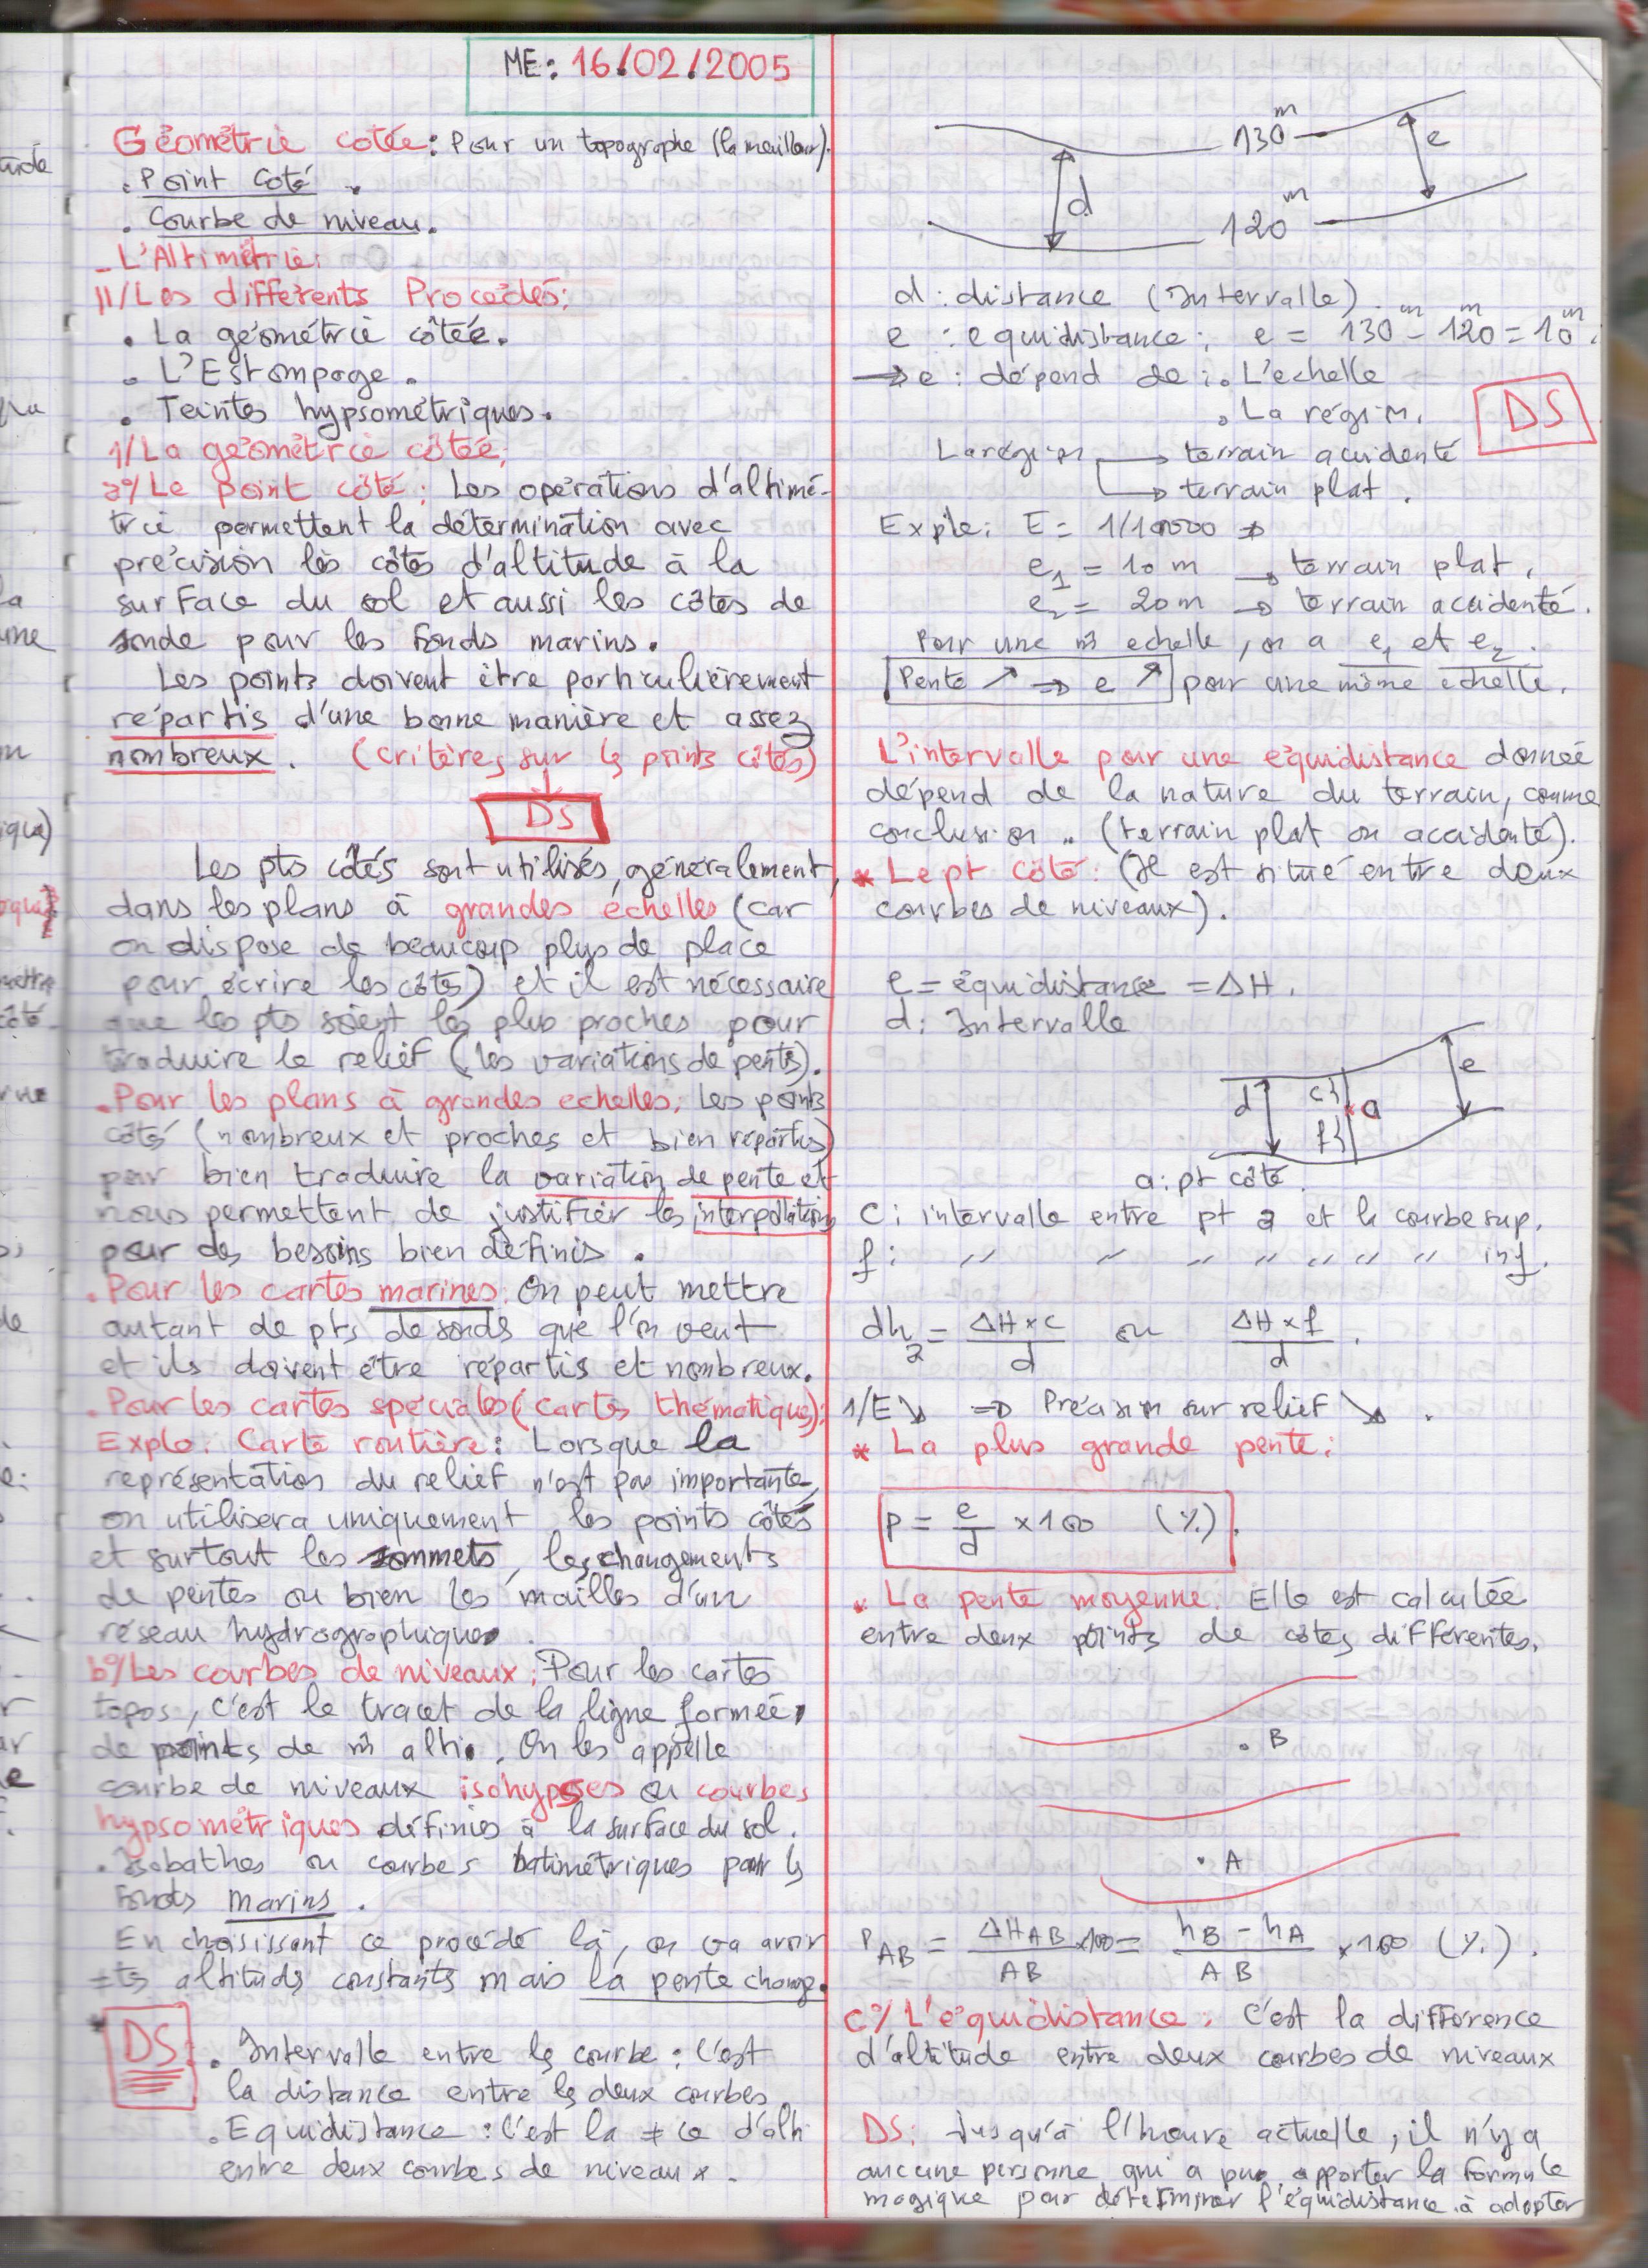 ME: 16/02/2005
Géométrie cotée: Pour un topographe (la meilleur).
. Point Coté .
. Courbe de niveau.
- L'Altimétrie:
II/Les différents Procédés:
. La géométrie côtée.
. L'Estompage.
. Teintes hypsométriques.
1/La géométrie côtée:
a°/Le point côté: Les opérations d'altimé-
trie permettent la détermination avec
précision les côtes d'altitude à la
surface du sol et aussi les côtes de
sonde pour les fonds marins.
Les points doivent être particulièrement
répartis d'une bonne manière et assez
nombreux. (critères sur les points côtés)
DS
Les pts côtés sont utilisés, généralement,
dans les plans à grandes échelles (car
on dispose de beaucoup plus de place
pour écrire les côtes) et il est nécessaire
que les pts soient les plus proches pour
traduire le relief (les variations de pentes).
. Pour les plans à grandes echelles: Les points
côtés (nombreux et proches et bien répartis)
pour bien traduire la variation de pente et
nous permettent de justifier les interpollations
pour des besoins bien définis.
. Pour les cartes marines: On peut mettre
autant de pts de sonds que l'on veut
et ils doivent être répartis et nombreux.
. Pour les cartes spéciales (cartes thématiques):
Exple: Carte routière: Lorsque la
représentation du relief n'est pas importante,
on utilisera uniquement les points côtés
et surtout les sommets, les changements
de pentes ou bien les mailles d'un
réseau hydrographique.
b°/Les courbes de niveaux: Pour les cartes
topos, c'est le tracet de la ligne formée,
de points de m̂ alti. On les appelle
courbe de niveaux isohypses ou courbes
hypsométriques définies à la surface du sol.
. Isobathes ou courbes batimétriques pour les
fonds marins.
En choisissant ce procédé là, on va avoir
≠tes altituds constants mais la pente change.
DS
. Intervalle entre les courbe: C'est
la distance entre les deux courbes
. Equidistance: C'est la ≠ce d'alti
entre deux courbes de niveaux.
130 m
e
d
120 m
d: distance (Intervalle).
e: equidistance; e = 130m - 120m = 10m.
→ e: dépend de: . L'echelle
. La région.
DS
La région → terrain accidenté
→ terrain plat.
Exple: E = 1/10000 ⇒
e1 = 10 m → terrain plat.
e2 = 20 m → terrain accidenté.
Pour une m̂ echelle, on a e1 et e2.
Pente ↗ ⇒ e ↗ pour une même echelle.
L'intervalle pour une équidistance donnée
dépend de la nature du terrain, comme
conclusion .. (terrain plat ou accidenté).
* Le pt côté: (Il est situé entre deux
courbes de niveaux).
e = équidistance = ΔH.
d: Intervalle
d c f a e
a: pt côté.
C: intervalle entre pt a et la courbe sup.
f: " " " " " " " inf.
dha = ΔH×c/d ou ΔH×f/d.
1/E ↘ ⇒ Précision sur relief ↘.
* La plus grande pente:
P = e/d ×100 (%).
. La pente moyenne: Elle est calculée
entre deux points de côtes différentes.
. B
. A
PAB = ΔHAB/AB ×100 = hB - hA/AB ×100 (%).
c°/ L'équidistance: C'est la différence
d'altitude entre deux courbes de niveaux
DS: Jusqu'à l'heure actuelle, il n'y a
aucune personne qui a pu apporter la formule
magique pour déterminer l'équidistance à adopter